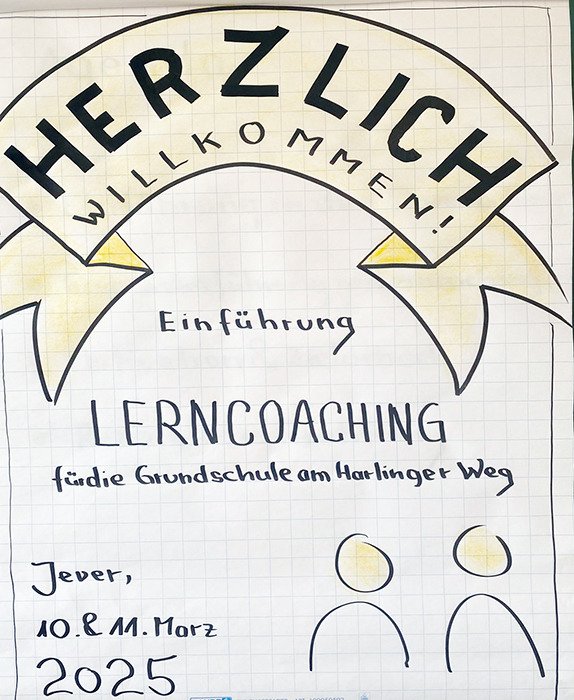 HERZLICH
WILLKOMMEN!
Einführung
LERNCOACHING
fürdie Grundschule am Harlinger Weg
Jever,
10. & 11. Marz
2025